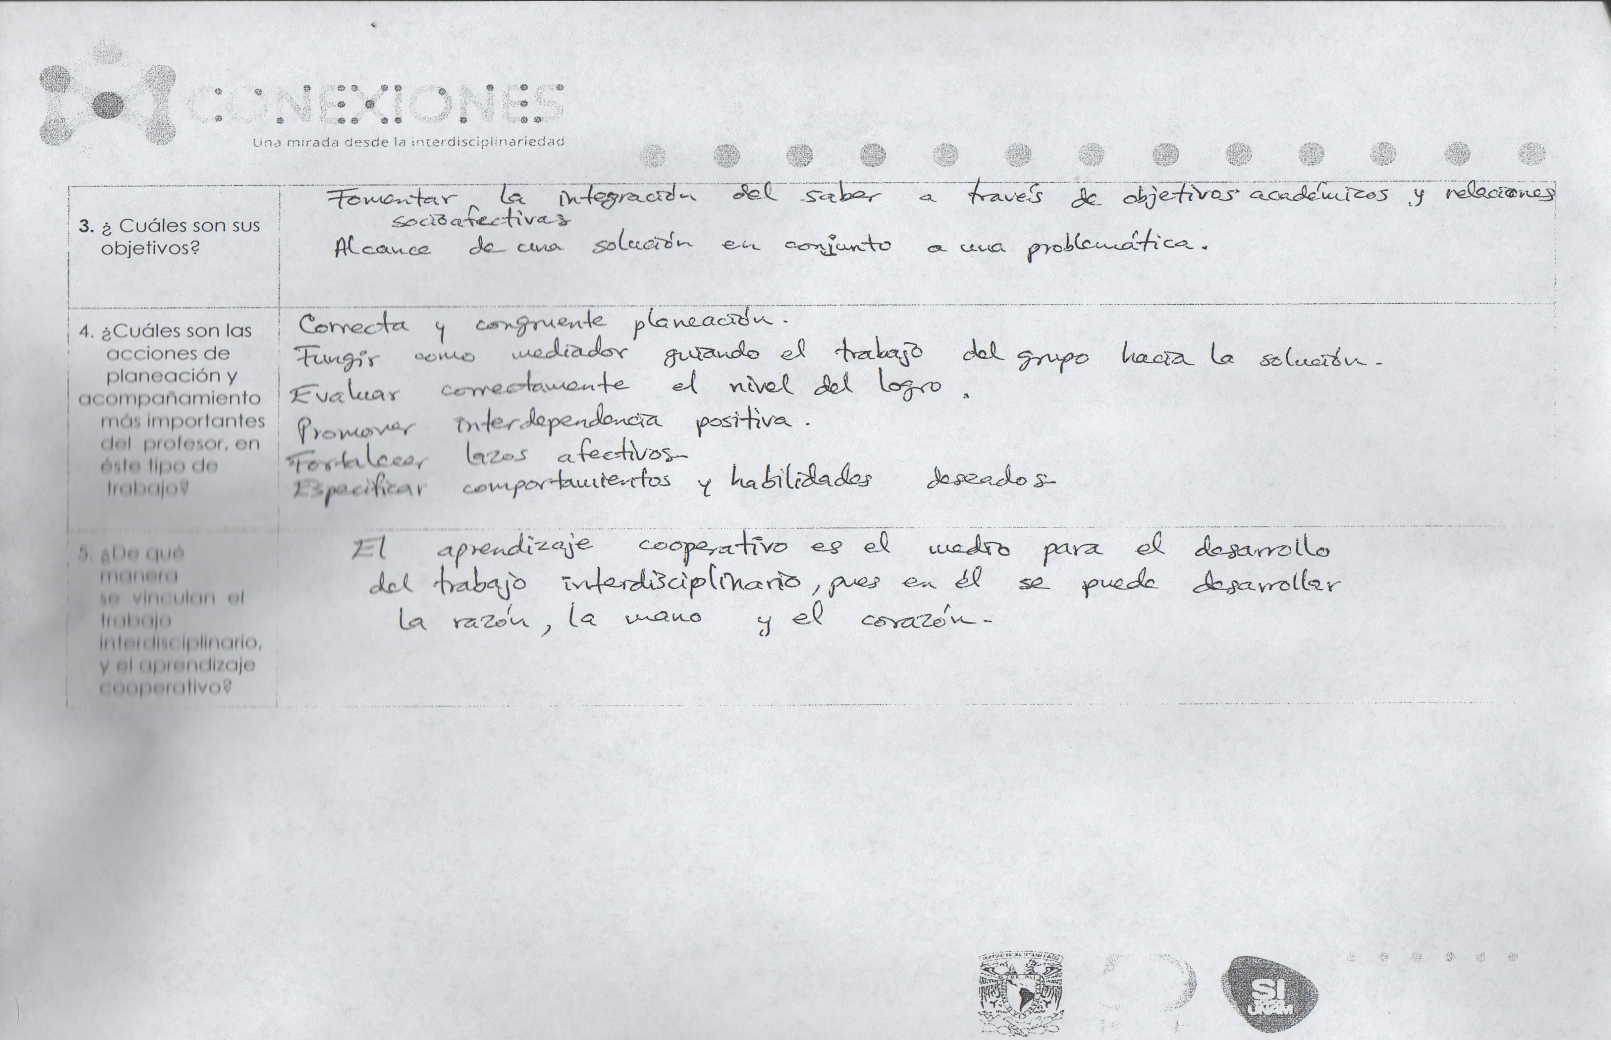 CONEXIONES
Una mirada desde la interdisciplinariedad
3. ¿ Cuáles son sus
objetivos?
Fomentar la integración del saber a través de objetivos académicos y relaciones
socioafectivas
Alcance de una solución en conjunto a una problemática.
4. ¿Cuáles son las
acciones de
planeación y
acompañamiento
más importantes
del profesor, en
éste tipo de
trabajo?
Correcta y congruente planeación.
Fungir como mediador guiando el trabajo del grupo hacia la solución.
Evaluar correctamente el nivel del logro.
Promover interdependencia positiva.
Fortalecer lazos afectivos
Especificar comportamientos y habilidades deseados
5. ¿De qué
manera
se vinculan el
trabajo
interdisciplinario,
y el aprendizaje
cooperativo?
El aprendizaje cooperativo es el medio para el desarrollo
del trabajo interdisciplinario, pues en él se puede desarrollar
la razón, la mano y el corazón.
SI
UNAM